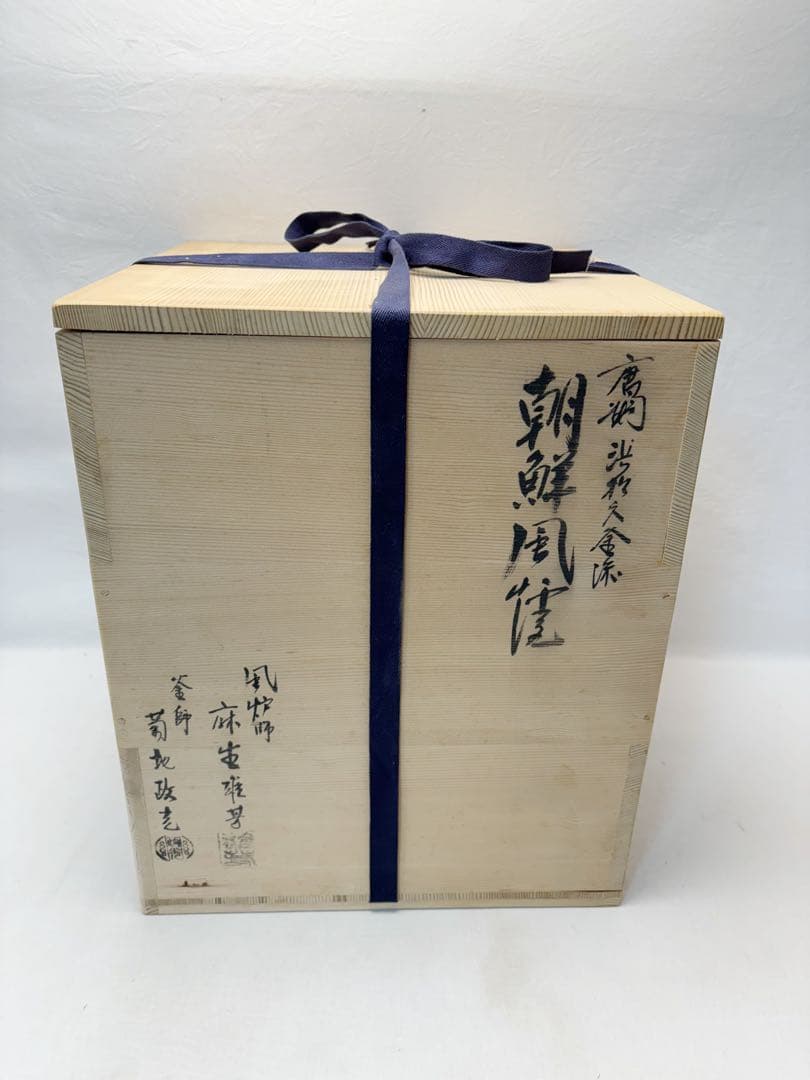 唐銅 浜松文釜添
朝鮮風爐
風炉師
麻生雅芳
釜師
菊地政光